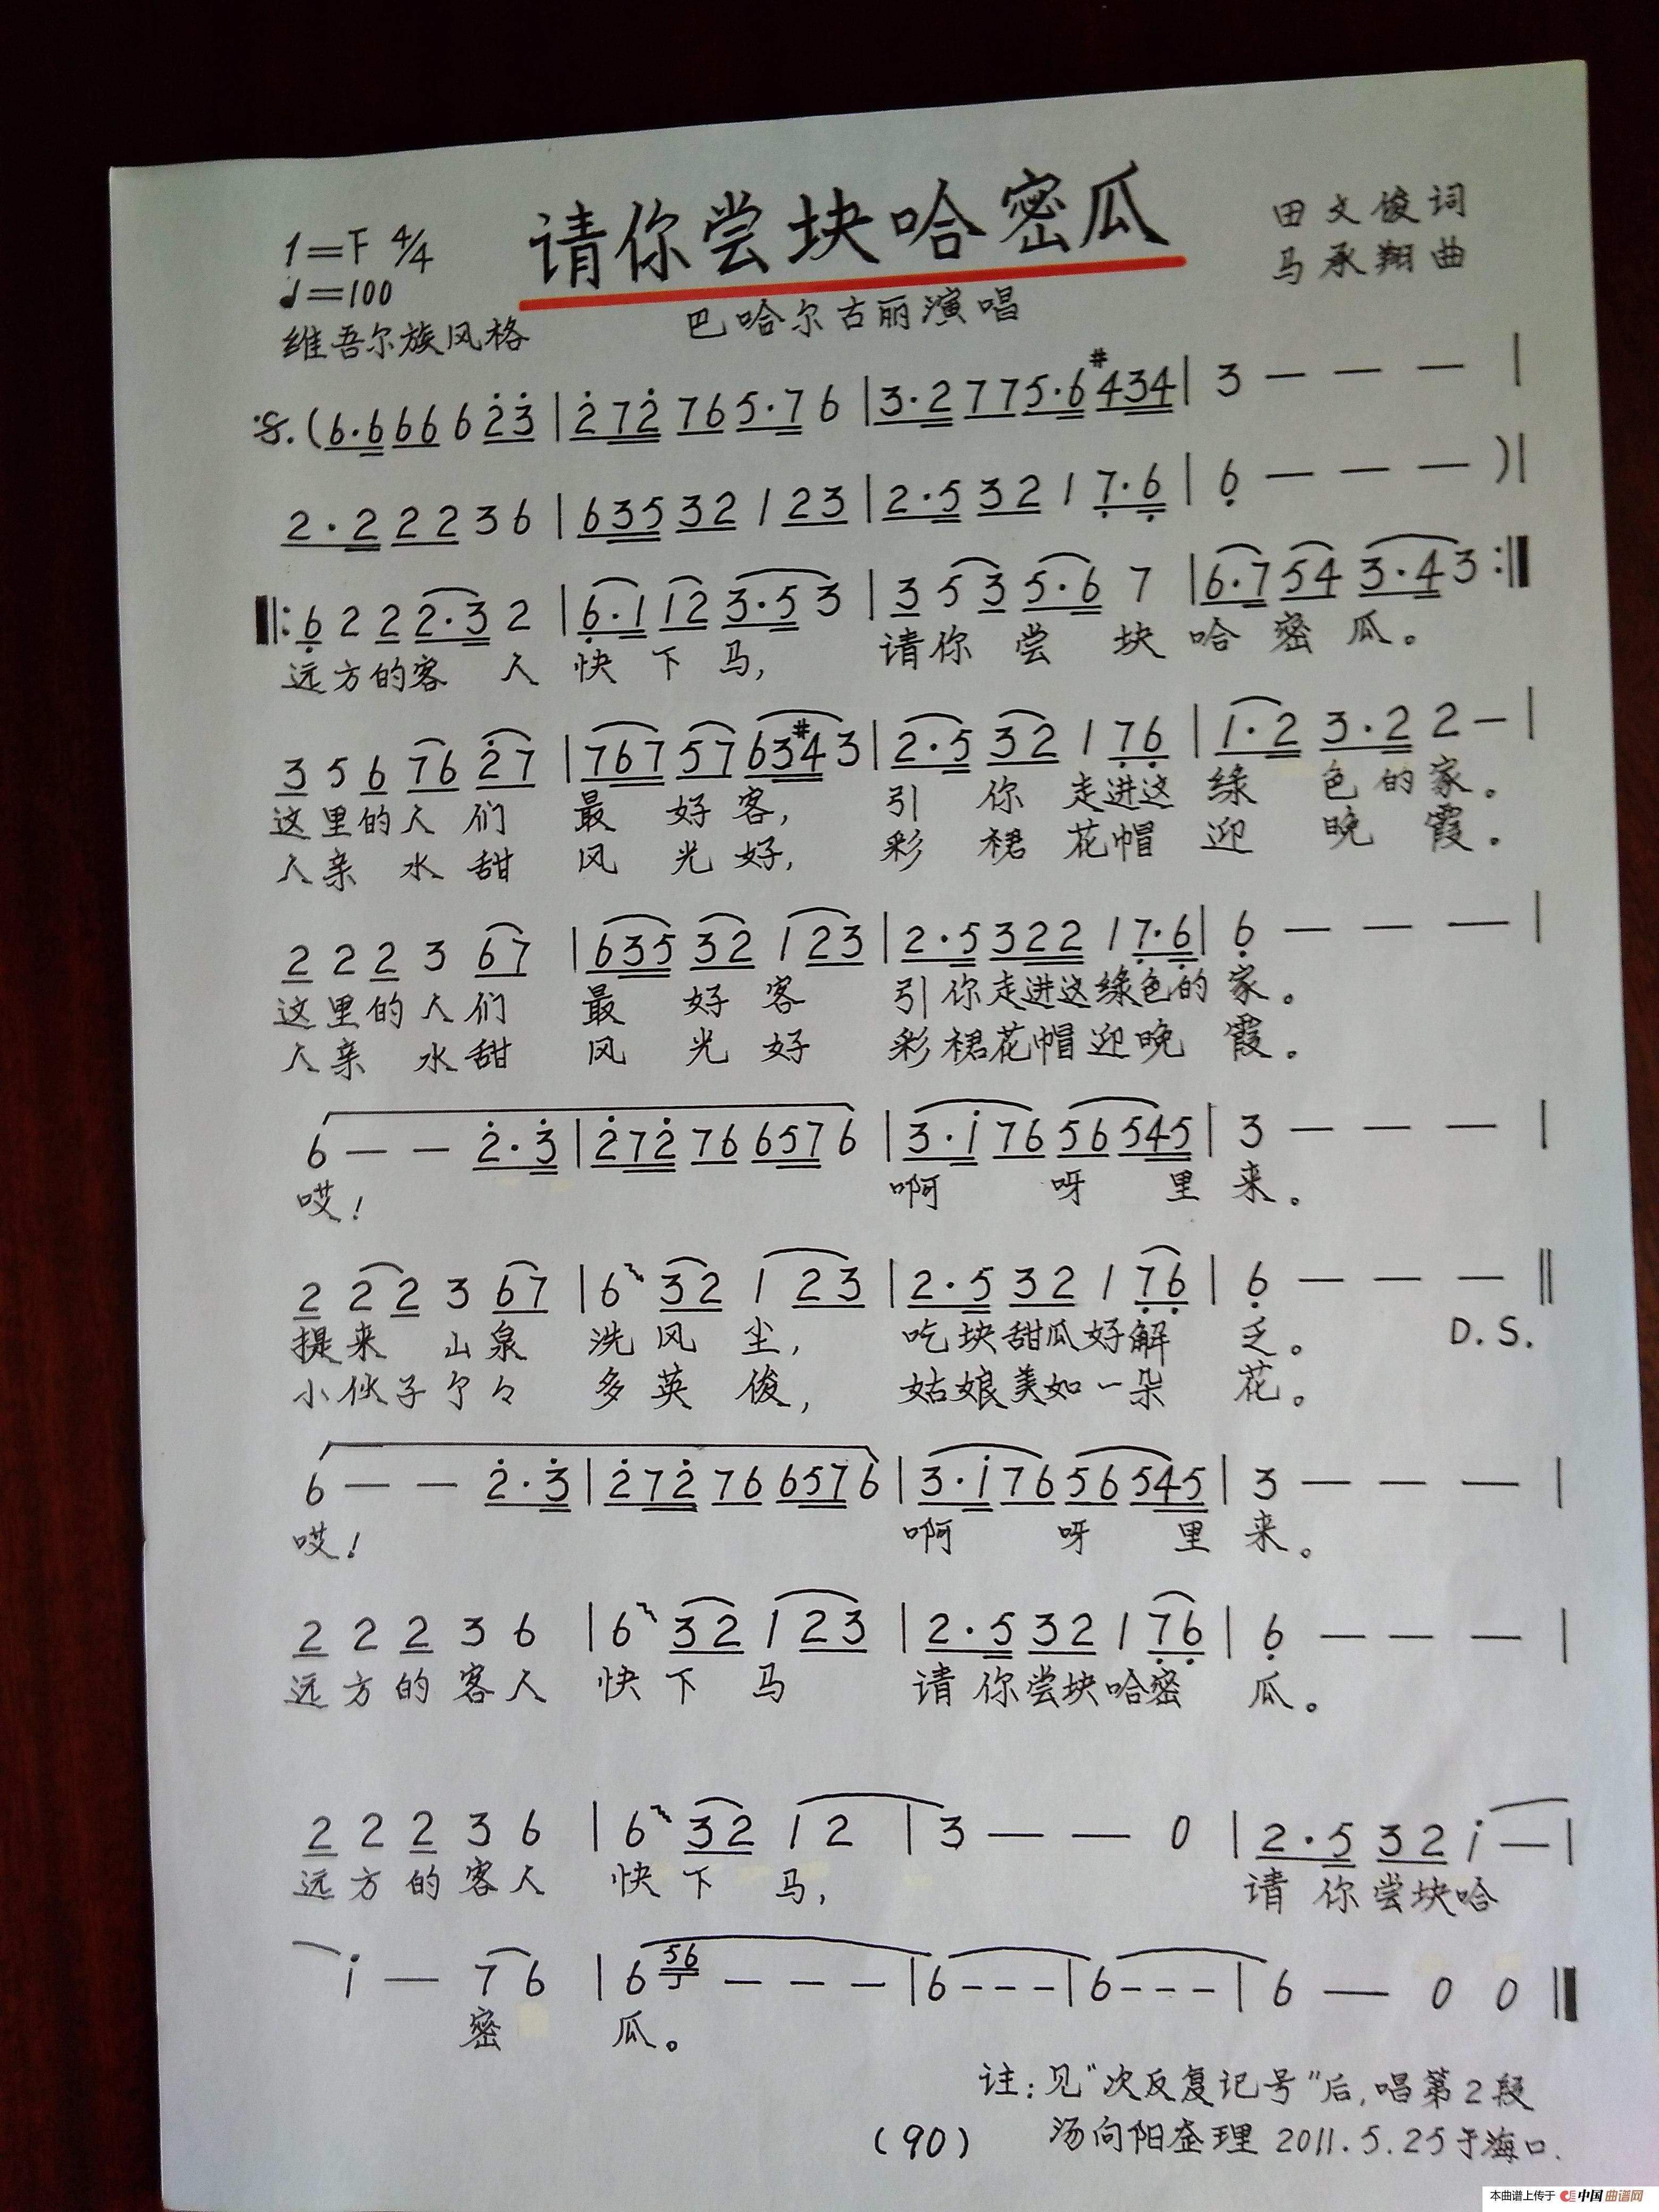 请你尝块哈密瓜
1=F 4/4
♩=100
维吾尔族风格
巴哈尔古丽演唱
田文俊词
马承翔曲
(6·6 6 6 6 2 3 | 2 7 2 7 6 5·7 6 | 3·2 7 7 5·6 #4 3 4 | 3 — — — |
2·2 2 2 3 6 | 6 3 5 3 2 1 2 3 | 2·5 3 2 1 7·6 | 6 — — — )|
‖: 6 2 2 2·3 2 | 6·1 1 2 3·5 3 | 3 5 3 5·6 7 | 6·7 5 4 3·4 3 :‖
远方的客 人 快 下 马, 请你 尝 块 哈 密 瓜。
3 5 6 7 6 2 7 | 7 6 7 5 7 6 3 #4 3 | 2·5 3 2 1 7 6 | 1·2 3·2 2 — |
这里的人 们 最 好 客, 引 你 走进这 绿 色 的 家。
人亲 水 甜 风 光 好, 彩 裙 花帽 迎 晚 霞。
2 2 2 3 6 7 | 6 3 5 3 2 1 2 3 | 2·5 3 2 2 1 7·6 | 6 — — — |
这里的人们 最 好 客 引你走进这绿色的 家。
人亲 水甜 风 光 好 彩裙花帽迎晚 霞。
6 — — 2·3 | 2 7 2 7 6 6 5 7 6 | 3·1 7 6 5 6 5 4 5 | 3 — — — |
哎! 啊 呀 里 来。
2 2 2 3 6 7 | 6 3 2 1 2 3 | 2·5 3 2 1 7 6 | 6 — — — ‖
提来 山泉 洗 风 尘, 吃块甜瓜好解 乏。 D.S.
小伙子个々 多 英 俊, 姑娘美如一朵 花。
6 — — 2·3 | 2 7 2 7 6 6 5 7 6 | 3·1 7 6 5 6 5 4 5 | 3 — — — |
哎! 啊 呀 里 来。
2 2 2 3 6 | 6 3 2 1 2 3 | 2·5 3 2 1 7 6 | 6 — — — |
远方的客人 快下 马 请你尝块哈密 瓜。
2 2 2 3 6 | 6 3 2 1 2 | 3 — — 0 | 2·5 3 2 1 — |
远方的客人 快下 马, 请 你尝块哈
1 — 7 6 | 6 56 — — — | 6 - - - | 6 - - - | 6 — 0 0 ‖
密 瓜。
注:见"次反复记号"后,唱第2段
(90) 汤向阳整理 2011.5.25于海口.
本曲谱上传于 中国曲谱网